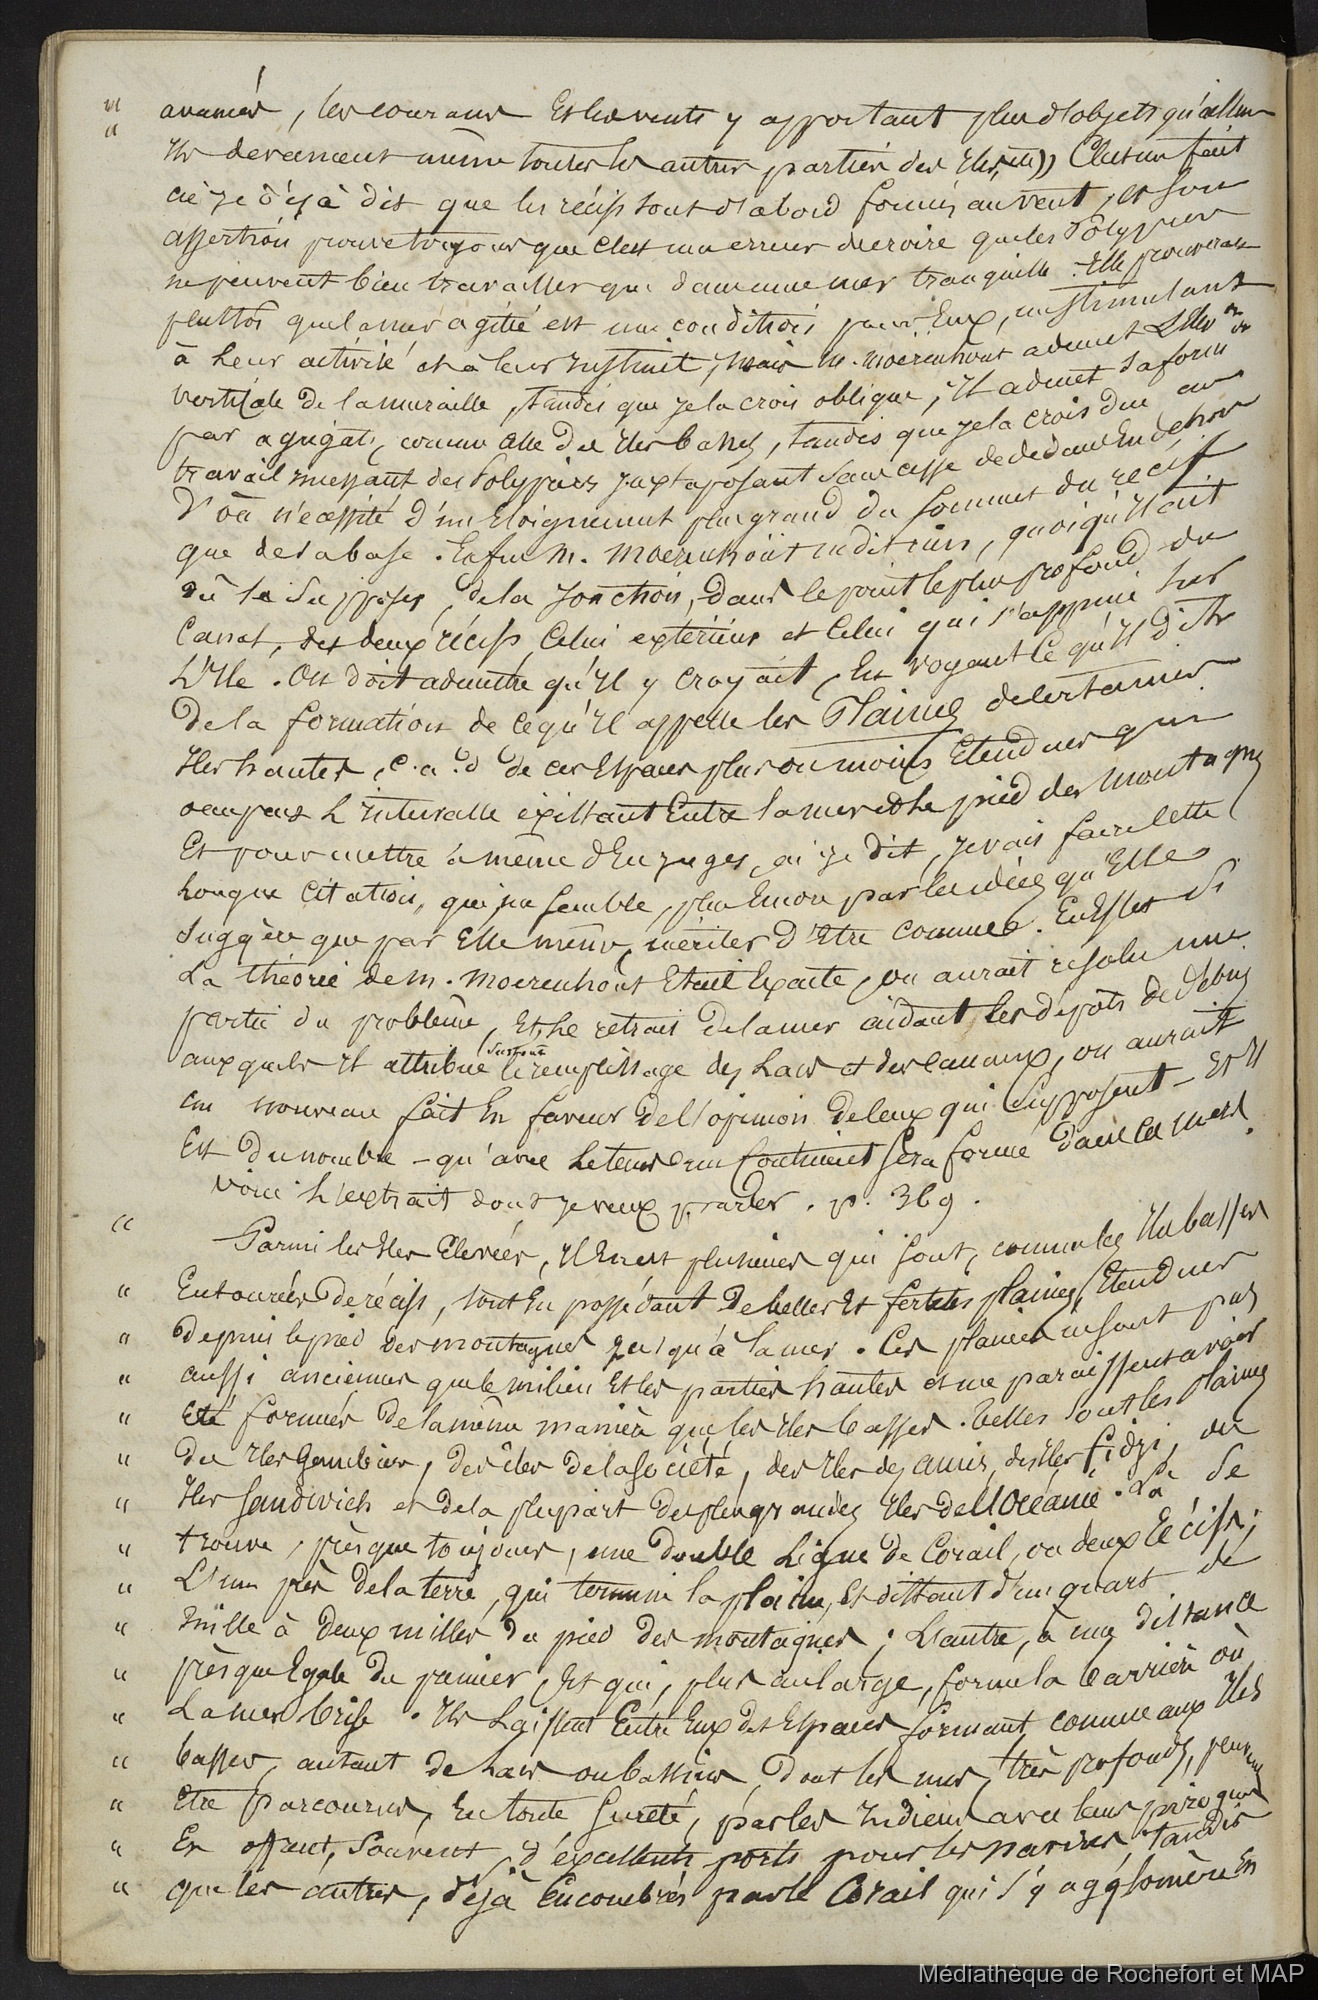 " avancées, les courans et les vents y apportant plus d'objets qu'ailleurs
" ils devancent même toutes les autres parties des Iles, &)) C'est un fait
ai-je déjà dit que les récifs sont d'abord formés au vent, et son
assertion prouve toujours que c'est une erreur de croire que les Polypiers
ne peuvent bien travailler que dans une mer tranquille. Elle prouverait
plustôt que la mer agitée est une condition pour Eux, un stimulant
à leur activité et à leur Instinct; mais M. Moerenhout admet
verticale de la muraille, tandis que je la crois oblique; Il admet sa form
par agrégats, comme celle des Iles basses, tandis que je la crois due au
travail incessant des Polypiers juxtaposant sans cesse de dedans En dehors
D'où nécessité d'un Eloignement plus grand du sommet du récif
que de sa base. Enfin M. Moerenhout ne dit rien, quoiqu'Il ait
dû le supposer, de la Jonction, dans le point le plus profond du
Canal, des deux récifs, Celui extérieur et Celui qui s'appuie sur
L'Ile. On doit admettre qu'Il y croyait, En voyant ce qu'Il dit
De la formation de ce qu'Il appelle les Plaines de certaines
Iles hautes, c.a.d de ces Espaces plus ou moins Etendues qui
occupent L'Intervalle existant Entre la mer et le pied des montagnes
Et pour mettre à même d'En juger, ai-je dit, je vais faire cette
Longue Citation, qui me semble, plus Encore par les idées qu'Elle
suggère que par Elle même, mériter d'Etre connue. En Effet si
La théorie de M. Moerenhout Etait Exacte, on aurait résolu une
partie du problême, Et le retrait de la mer aidant les dépôts de débris
auxquels Il attribue surtout le remplissage des Lacs et des canaux, on aurait
un nouveau fait En faveur de l'opinion de ceux qui supposent - Et Il
Est du nombre - qu'avec le tems un Continent sera formé dans ces mers.
Voici L'extrait dont je veux parler. p. 369.
" Parmi les Iles Elevées, Il En est plusieurs qui sont, comme les Iles basses
" Entourées De récifs, tout En possédant De belles Et fertiles plaines, Etendues
" Depuis le pied des montagnes jusqu'à la mer. Ces plaines ne sont pas
" aussi anciennes que le milieu Et les parties hautes et me paraissent avoir
" Eté formées De la même manière que les Iles basses. Telles sont les Plaines
" Des Iles Gambier, des îles de la Société, des Iles des amis, des Iles Fidji, des
" Iles Sandwich et de la plupart des plus grandes Iles de l'Océanie. Là se
" trouve, presque toujours, une double Ligne De Corail, ou deux Récifs;
" L'un près de la terre, qui termine la plaine, Et distant d'un quart de
" mille à Deux milles du pied des montagnes; L'autre, à une distance
" presque Egale du premier, Et qui, plus au large, forme la barrière où
" La mer brise. Ils Laissent Entre Eux des Espaces formant, comme aux Iles
" basses, autant de Lacs ou bassins, Dont les uns, très profonds, peuvent
" Etre parcourus, En toute sureté, par les Indiens avec leurs pirogues
" Et offrent, souvent, d'excellents ports pour les navires, tandis
" que les autres, déjà Encombrés par le Corail qui s'y agglomère En
Médiathèque de Rochefort et MAP